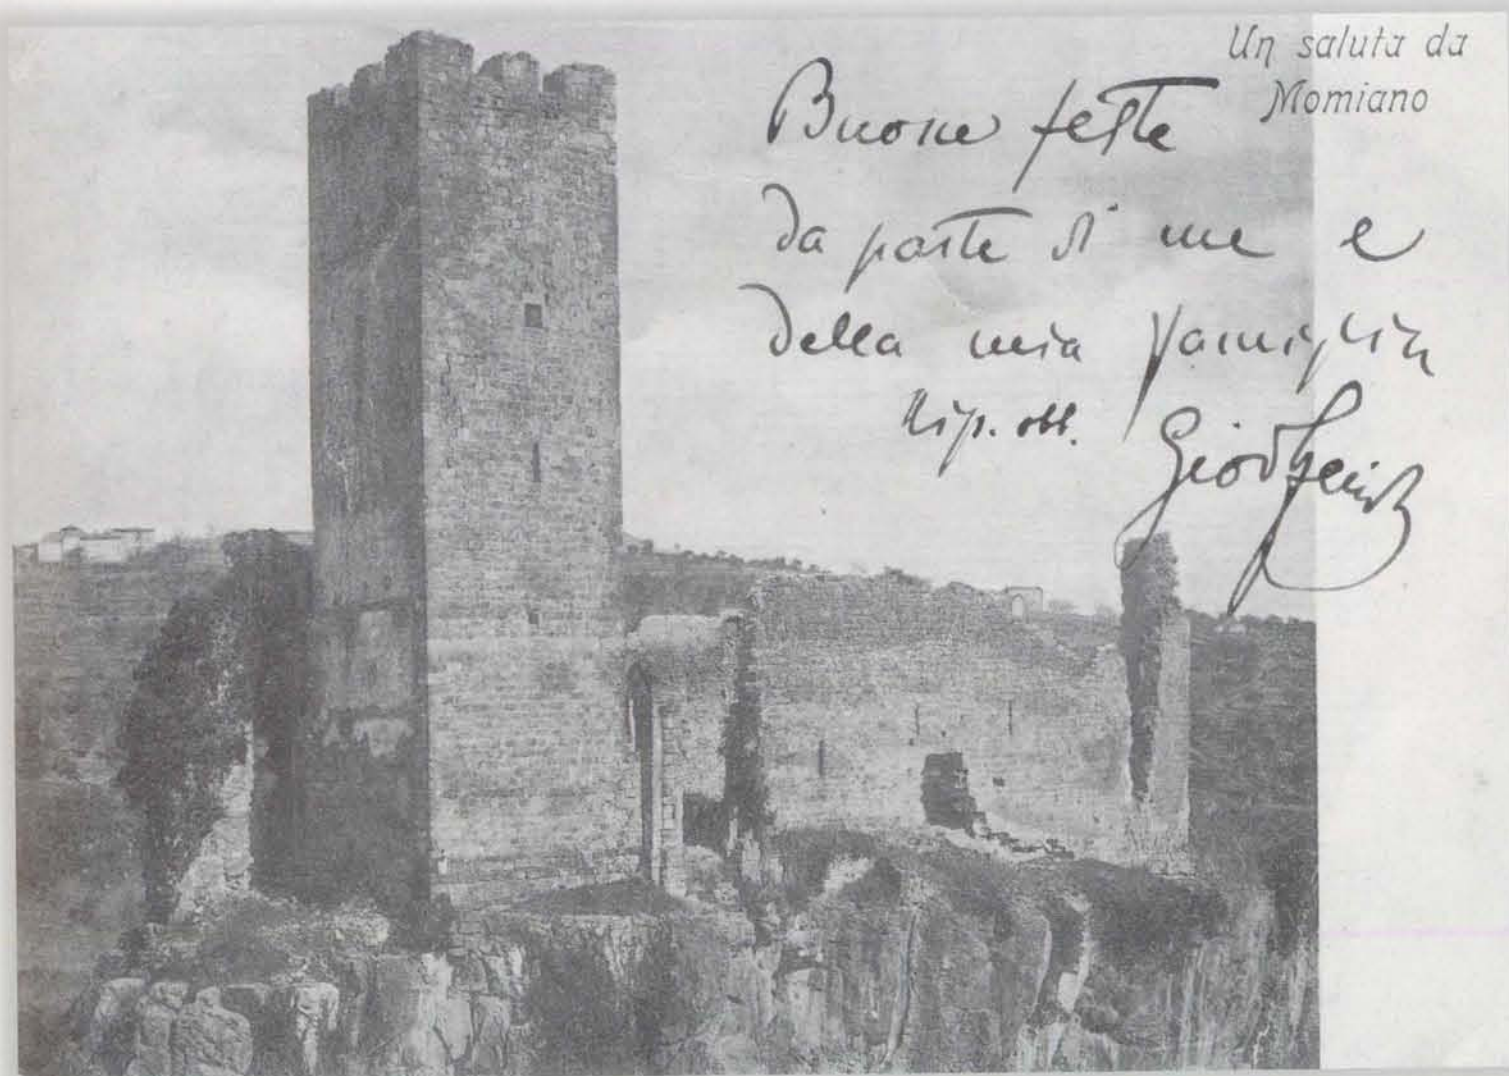 Un saluta da
Momiano
Buone feste
da parte di me e
della mia famiglia
obb.